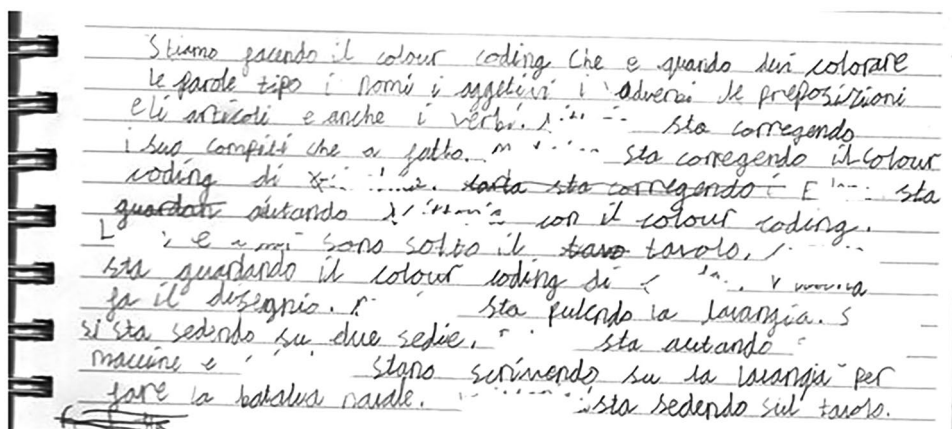 Stiamo facendo il colour coding che e quando devi colorare
le parole tipo i nomi i aggetivi i adverbi le preposizioni
e li articoli e anche i verbi. sta corregendo
i suo compiti che a fatto. sta corregendo il colour
coding di sta corregendo E sta
guardan aiutando con il colour coding.
L e sono sotto il tavo tavolo.
sta guardando il colour coding di
fa il disegnio. sta pulendo la lavangia. S
si sta sedendo su due sedie. sta autando
e stano scrivendo su la lavangia per
fare la batalia navale. sta sedendo sul tavolo.